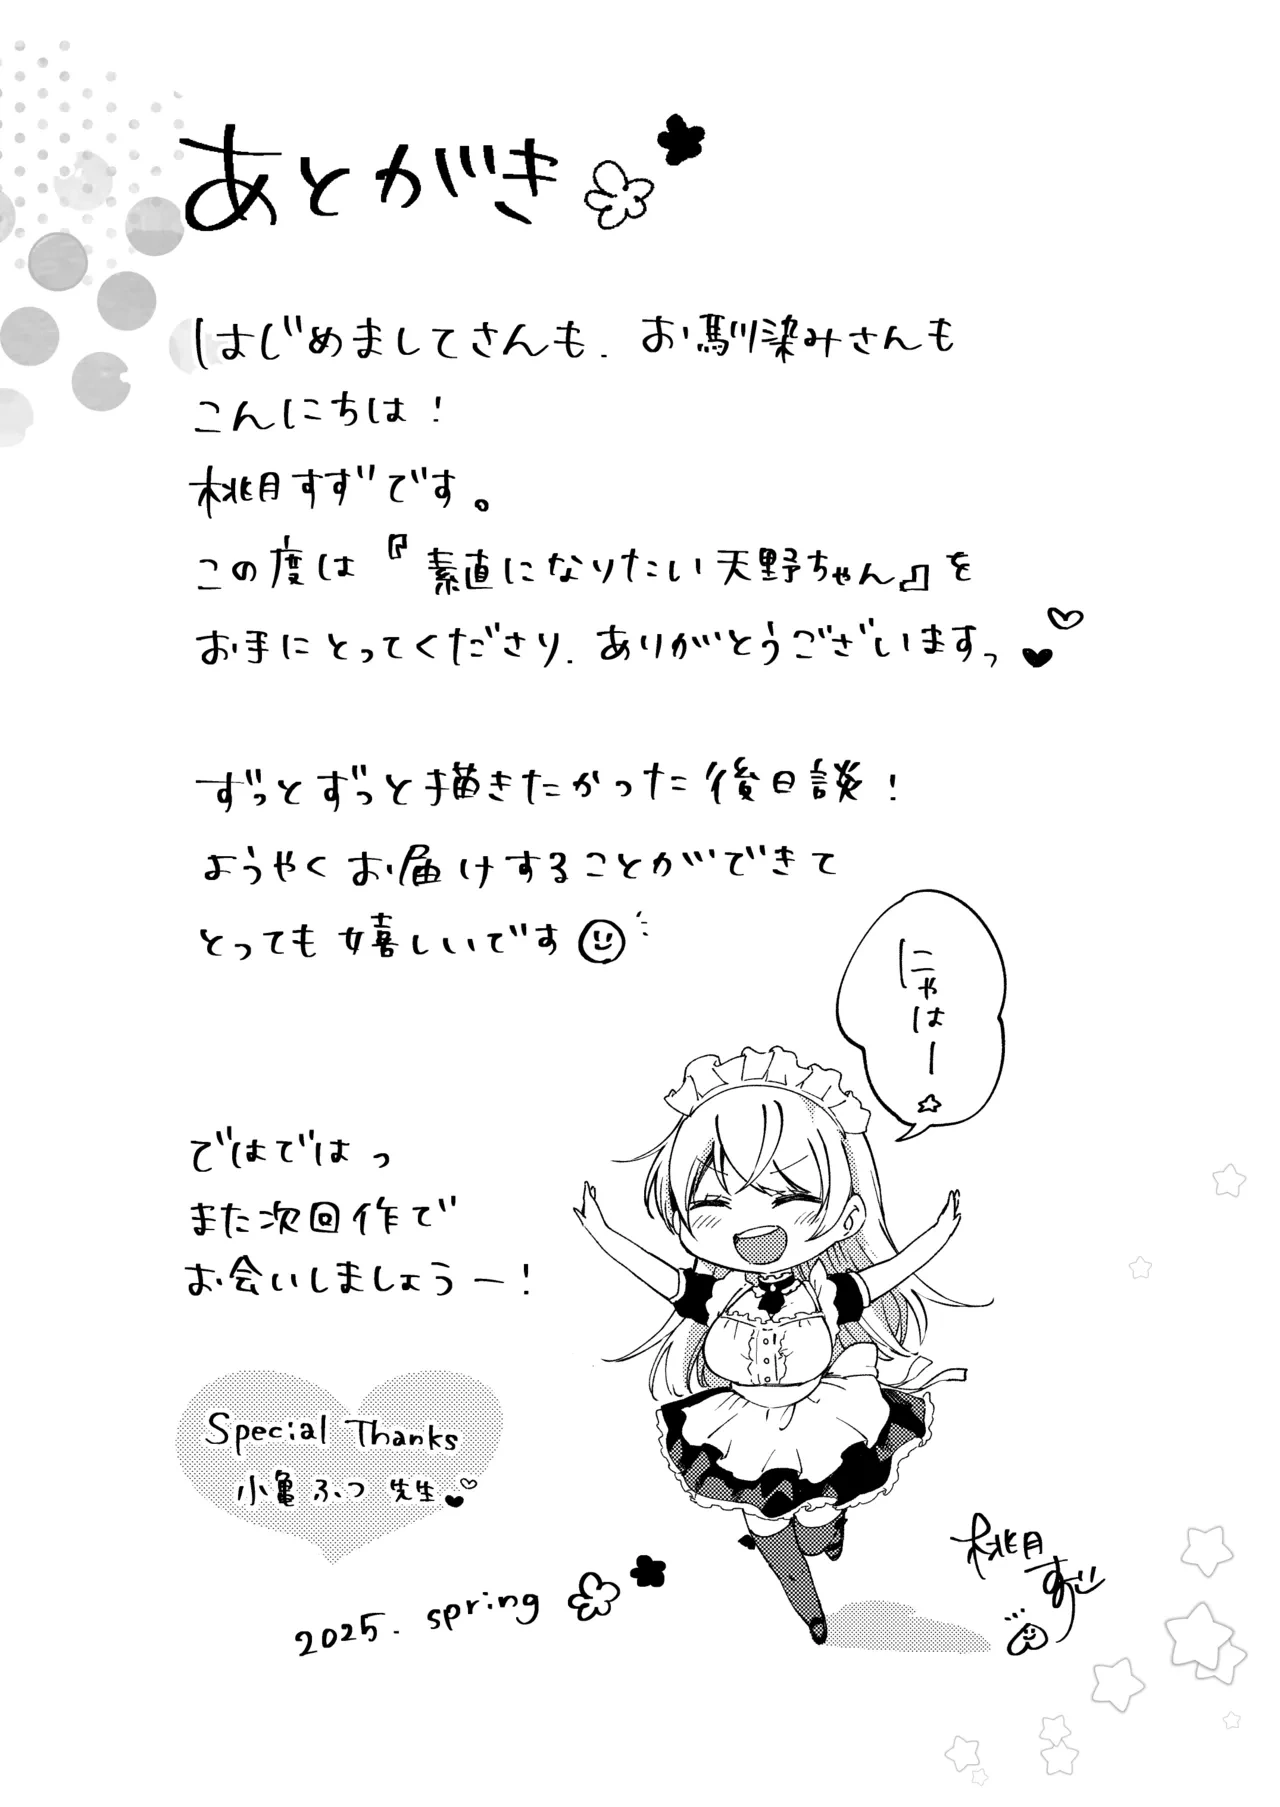 あとがき
はじめましてさんも、お馴染みさんも
こんにちは！
桃月すずです。
この度は『素直になりたい天野ちゃん』を
お手にとってくださり、ありがとうございますっ
ずっとずっと描きたかった後日談！
ようやくお届けすることができて
とっても嬉しいです
にゃはー☆
ではではっ
また次回作で
お会いしましょうー！
Special Thanks
小亀ふつ先生
2025. spring
桃月
すず